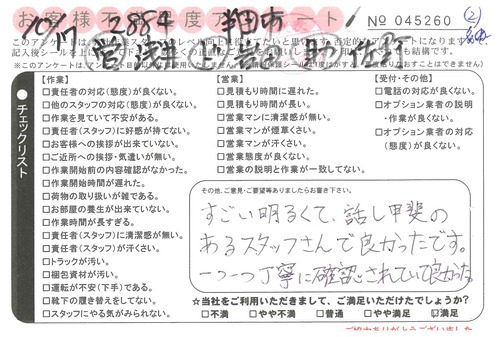 お客様不満足度アンケート
No 045260 ②
10/17 2884 半田市
このアンケートは、
チェックリスト
【作業】
□責任者の対応(態度)が良くない。
□他のスタッフの対応(態度)が良くない。
□作業を見ていて不安がある。
□責任者(スタッフ)に好感が持てない。
□お客様への挨拶が出来ていない。
□ご近所への挨拶・気遣いが無い。
□作業開始前の内容確認がなかった。
□作業開始時間が遅れた。
□荷物の取り扱いが雑である。
□お部屋の養生が出来ていない。
□作業時間が長すぎる。
□責任者(スタッフ)に清潔感が無い。
□責任者(スタッフ)が汗くさい。
□トラックが汚い。
□梱包資材が汚い。
□運転が不安(下手)である。
□靴下の履き替えをしてない。
□スタッフにやる気がみられない。
【営業】
□見積もり時間に遅れた。
□見積もり時間が長い。
□営業マンに清潔感が無い。
□営業マンが煙草くさい。
□営業マンが汗くさい。
□営業態度が良くない。
□営業の説明と作業が一致してない。
【受付・その他】
□電話の対応が良くない。
□オプション業者の説明
・作業が良くない。
□オプション業者の対応
(態度)が良くない。
その他、ご意見・ご要望等ありましたらお書き下さい。
すごい明るくて、話し甲斐の
あるスタッフさんで良かったです。
一つ一つ丁寧に確認されていて良かった。
☆当社をご利用いただきまして、ご満足いただけたでしょうか?
□不満 □やや不満 □普通 □やや満足 ☑満足
ご協力ありがとうございました